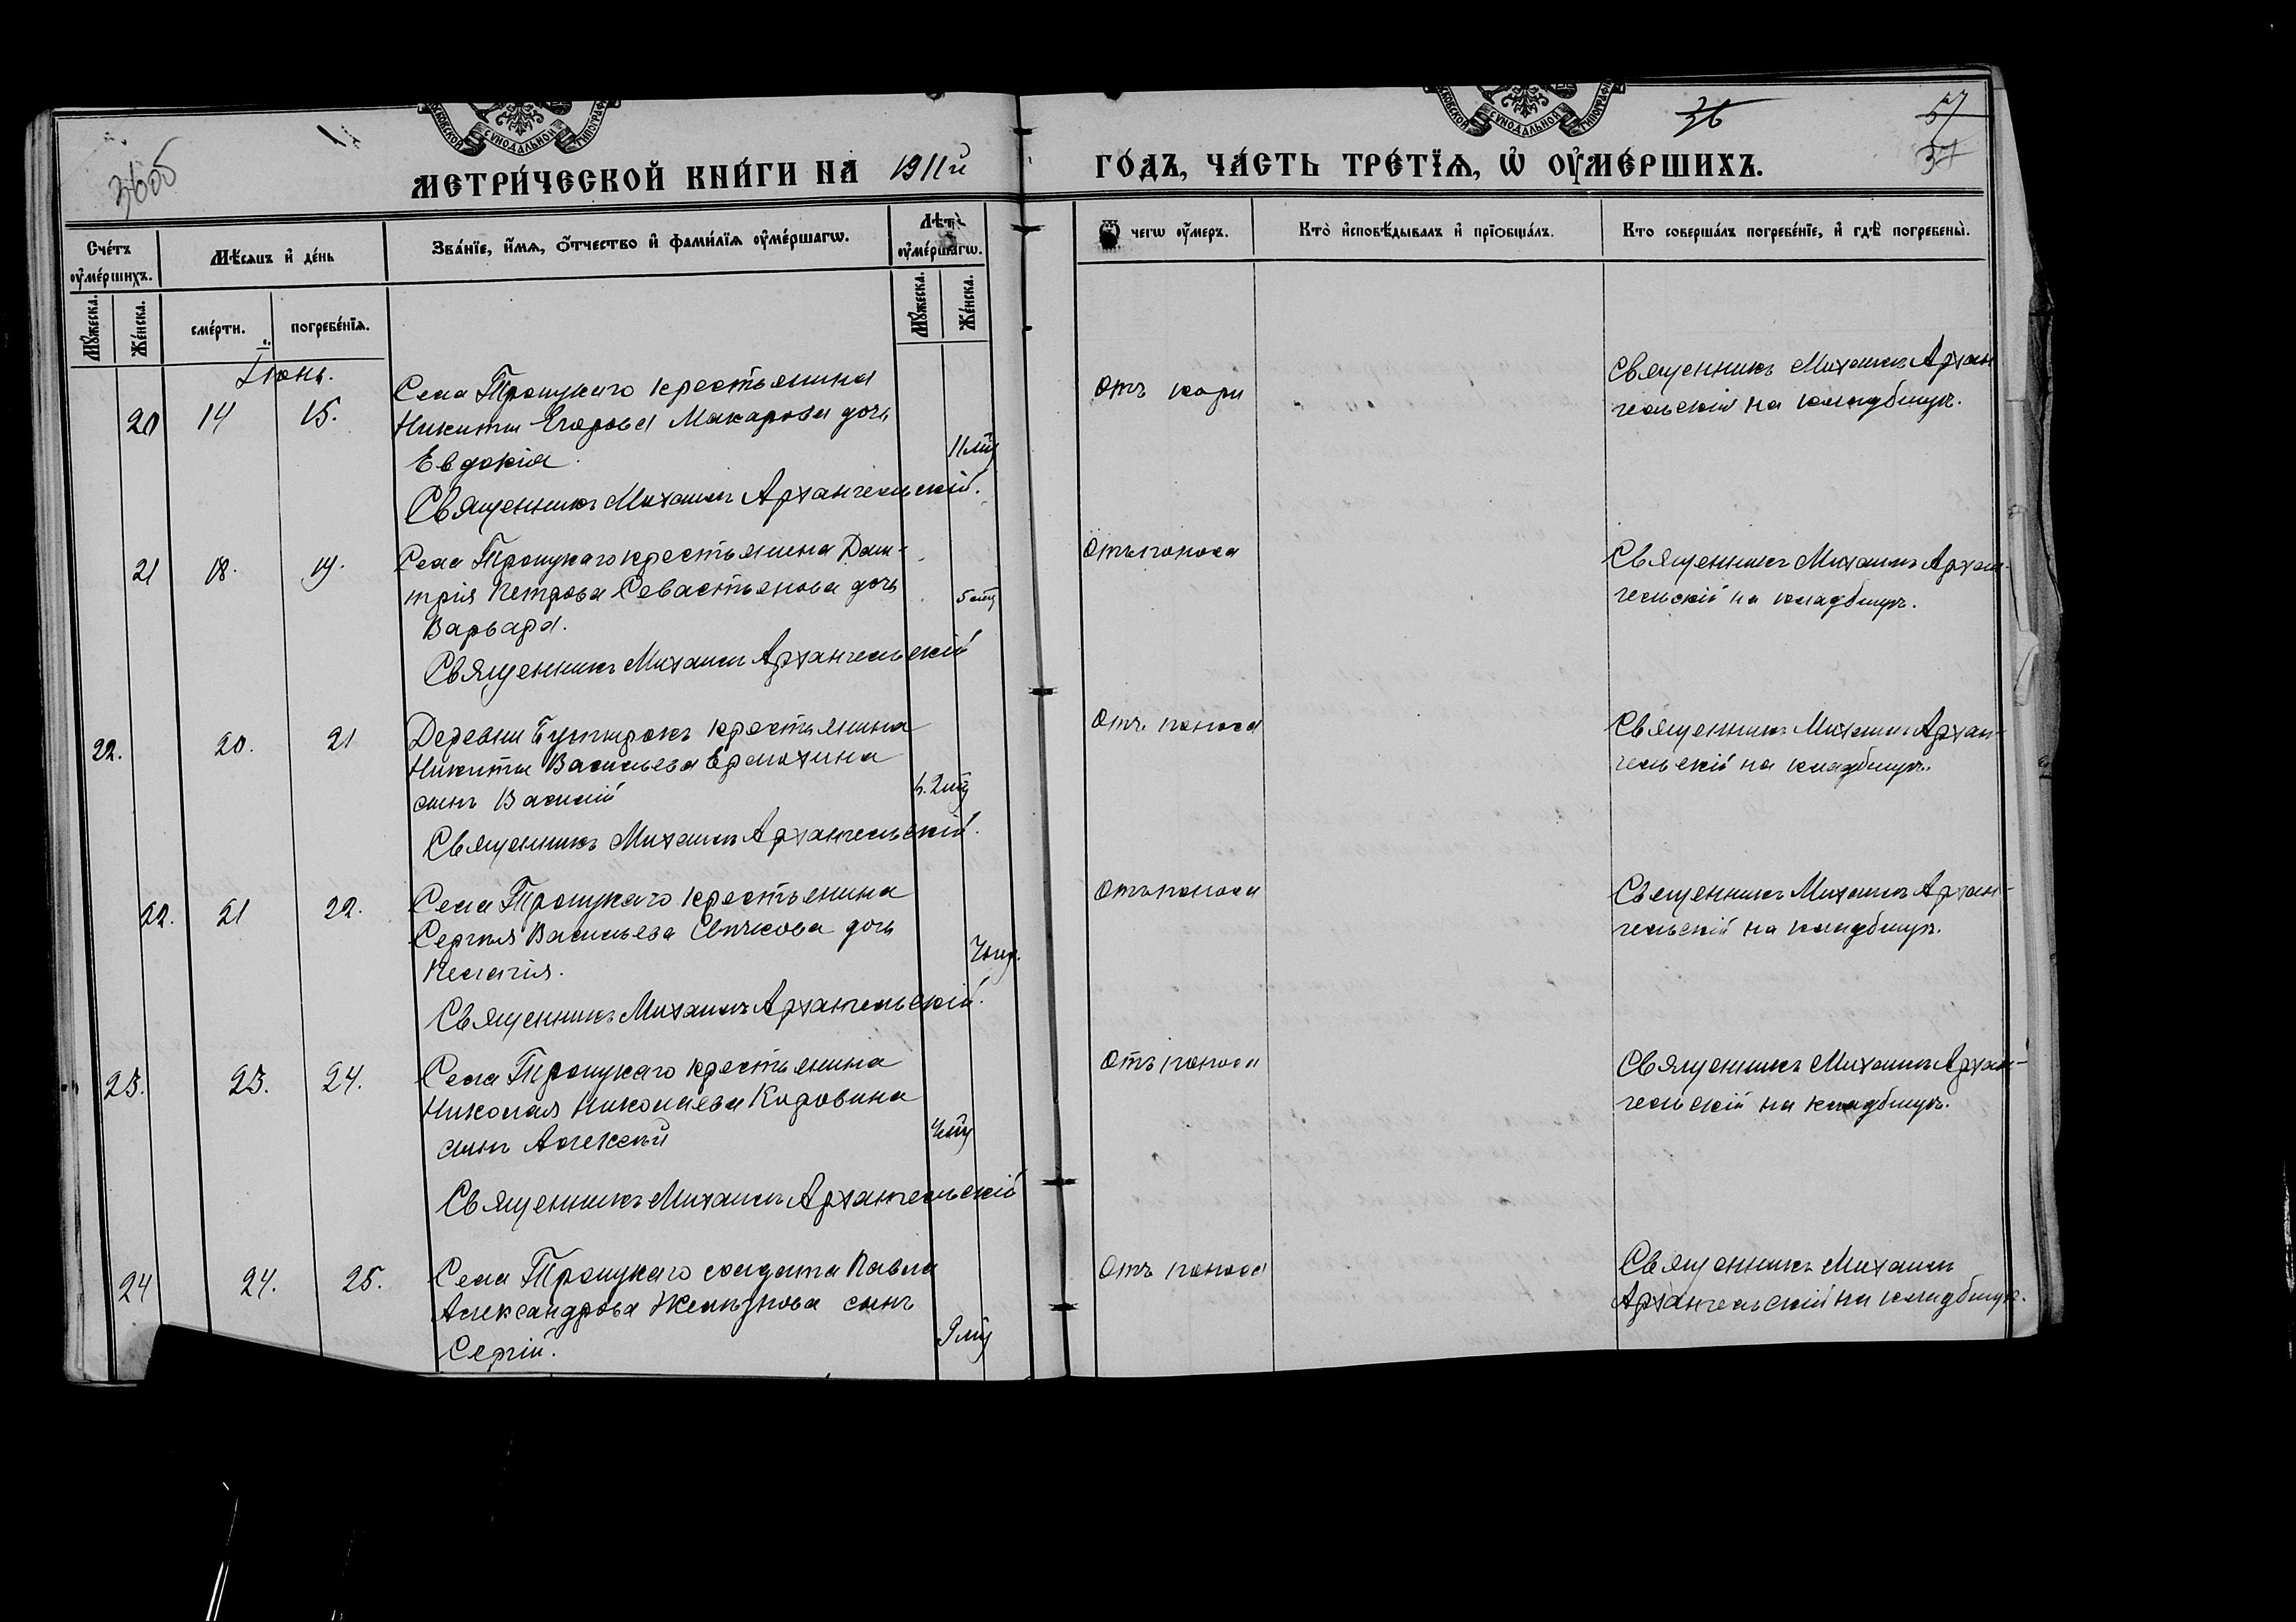 36об
36
57
37
МОСКОВСКОЙ СѴНОДАЛЬНОЙ ТИПОГРАФІИ
МЕТРИ́ЧЕСКОЙ КНИ́ГИ НА 1911й ГО́ДЪ, ЧА́СТЬ ТРЕ́ТІѦ, Ѽ ОУ҆МЕ́РШИХЪ.
Сче́тъ оу҆ме́ршихъ.
Мѣ́сяцъ и҆ де́нь
Зва́нїе, и҆́мѧ, ѻ҆́тчество и҆ фами́лїѧ оу҆ме́ршагѡ.
Лѣ́та оу҆ме́ршагѡ.
Ѿ чегѡ̀ оу҆́меръ.
Кто̀ и҆сповѣ́дывалъ и҆ прїѡбща́лъ.
Кто̀ соверша́лъ погребе́нїе, и҆ гдѣ̀ погребены̀.
Му́жеска.
Же́нска.
сме́рти.
погребе́нїѧ.
Му́жеска.
Же́нска.
Іюнь.
20 14 15.
Села Троицкаго крестьянина
Никиты Егорова Макарова дочь
Евдокія.
11 мц
Священникъ Михаилъ Архангельскій.
Отъ кори
Священникъ Михаилъ Архан
гельскій на кладбищѣ.
21 18. 19.
Села Троицкаго крестьянина Дми-
трія Петрова Севастьянова дочь
Варвара.
5 мц
Священникъ Михаилъ Архангельскій
Отъ поноса
Священникъ Михаилъ Архан-
гельскій на кладбищѣ.
22. 20. 21
Деревни Бутырокъ крестьянина
Никиты Васильева Ермохина
сынъ Василій
Священникъ Михаилъ Архангельскій.
Отъ поноса
Священникъ Михаилъ Архан-
гельскій на кладбищѣ.
22. 21 22.
Села Троицкаго крестьянина
Сергѣя Васильева дочь
Пелагія.
Священникъ Михаилъ Архангельскій.
Отъ поноса
Священникъ Михаилъ Архан-
гельскій на кладбищѣ.
23. 23. 24.
Села Троицкаго крестьянина
Николая Николаева Коровина
сынъ Алексѣй
Священникъ Михаилъ Архангельскій
Отъ поноса
Священникъ Михаилъ Архан-
гельскій на кладбищѣ.
24 24. 25.
Села Троицкаго солдата Павла
Александрова сынъ
Сергій.
9 мц
Отъ поноса
Священникъ Михаилъ
Архангельскій на кладбищѣ.